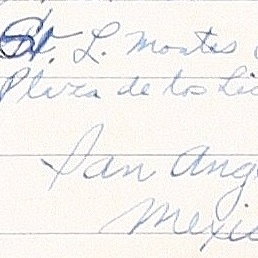 St. L. Montes
Plaza de los Li
San Ang
Mexic